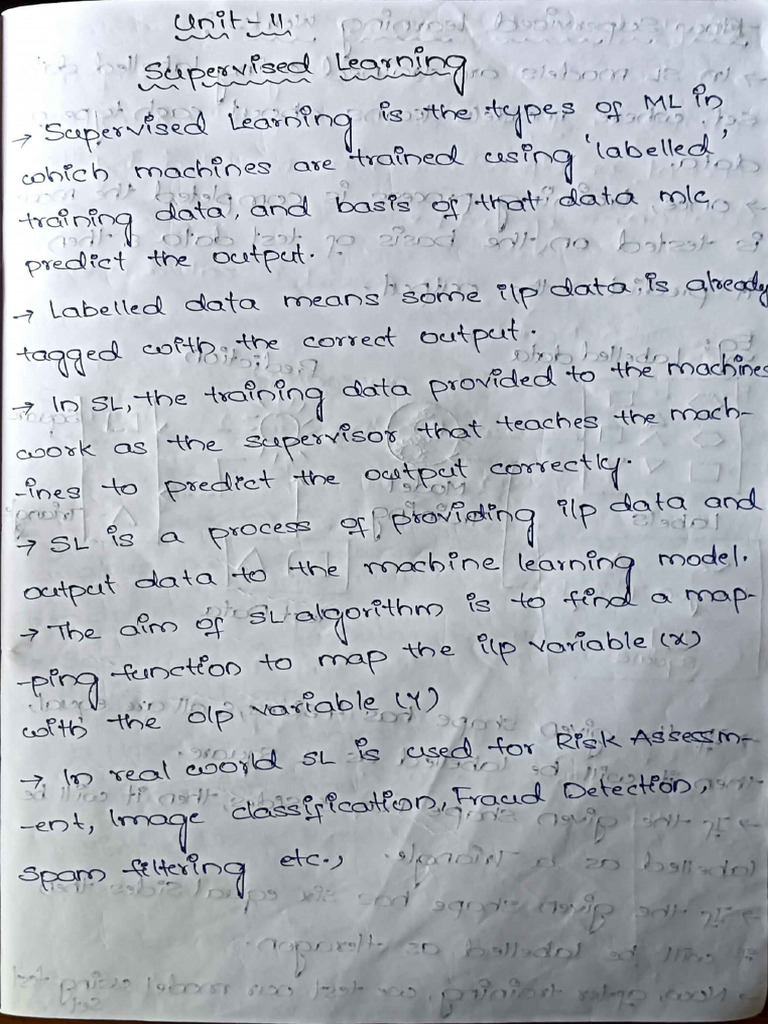 Unit-II
Supervised Learning
→ Supervised Learning is the types of ML in
which machines are trained using 'labelled'
training data, and basis of that data m/c
predict the output.
→ Labelled data means some i/p data is already
tagged with the correct output.
→ In SL, the training data provided to the machines
work as the supervisor that teaches the mach-
-ines to predict the output correctly.
→ SL is a process of providing i/p data and
output data to the machine learning model.
→ The aim of SL algorithm is to find a map-
-ping function to map the i/p variable (x)
with the o/p variable (Y)
→ In real world SL is used for Risk Assessm-
-ent, Image classification, Fraud Detection,
spam filtering etc.,